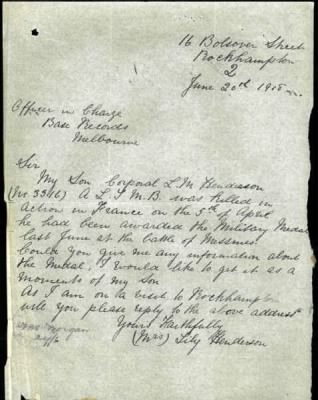 16 Bolsover Street
Rockhampton
2
June 20th 1918
Officer in Charge
Base Records
Melbourne
Sir
My Son Corporal L. M Henderson
(No 3346) A L. T M. B. was killed in
action in France on the 5th of April
he had been awarded the Military Medal
last June at the battle of Messines
Could you give me any information about
the Medal, I would like to get it as a
momento of my Son
As I am on a visit to Rockhampton
will you please reply to the above address
Yours Faithfully
(Mrs) Lily Henderson
Morgan